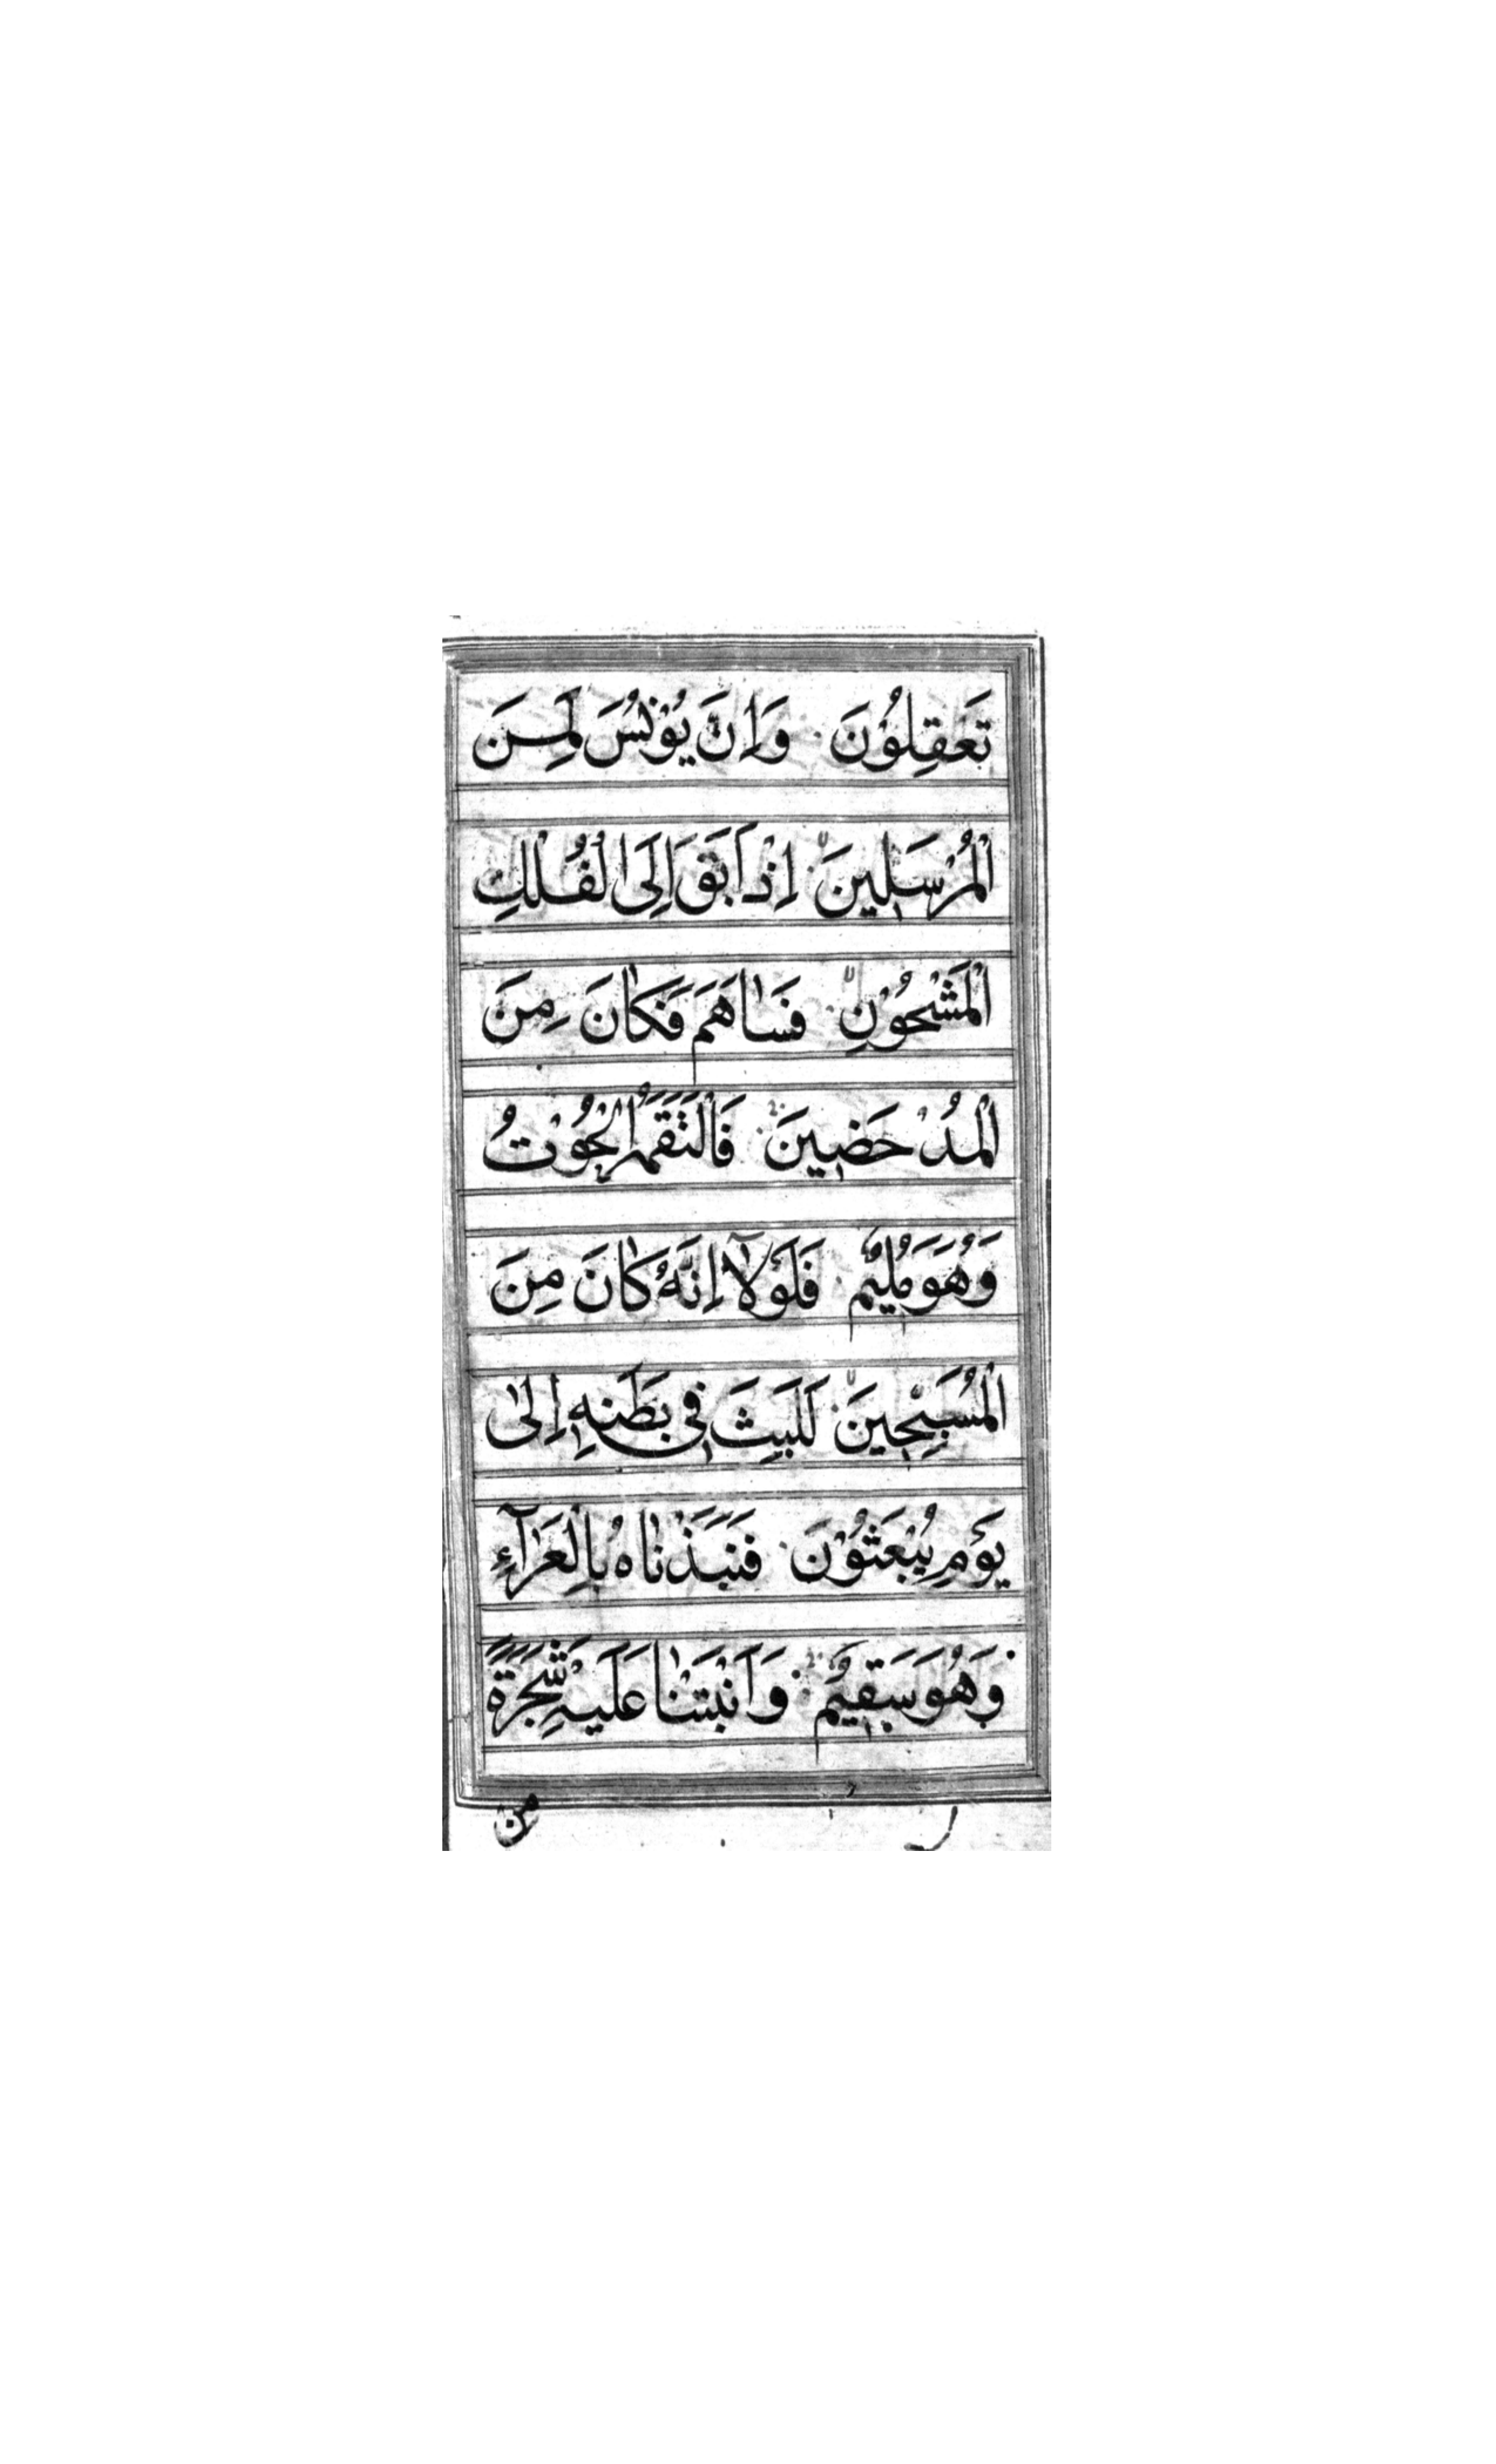 تَعْقِلُوْنَ وَاِنَّ يُوْنُسَ لَمِنَ
الْمُرْسَلِينَ اِذْ اَبَقَ اِلَى الْفُلْكِ
الْمَشْحُوْنِ فَسَاهَمَ فَكَانَ مِنَ
الْمُدْحَضِينَ فَالْتَقَمَهُ الْحُوْتُ
وَهُوَ مُلِيْمٌ فَلَوْلَآ اِنَّهُ كَانَ مِنَ
الْمُسَبِّحِينَ لَلَبِثَ فِى بَطْنِهِ اِلٰى
يَوْمِ يُبْعَثُوْنَ فَنَبَذْنَاهُ بِالْعَرَآءِ
وَهُوَ سَقِيْمٌ وَاَنْبَتْنَا عَلَيْهِ شَجَرَةً
من